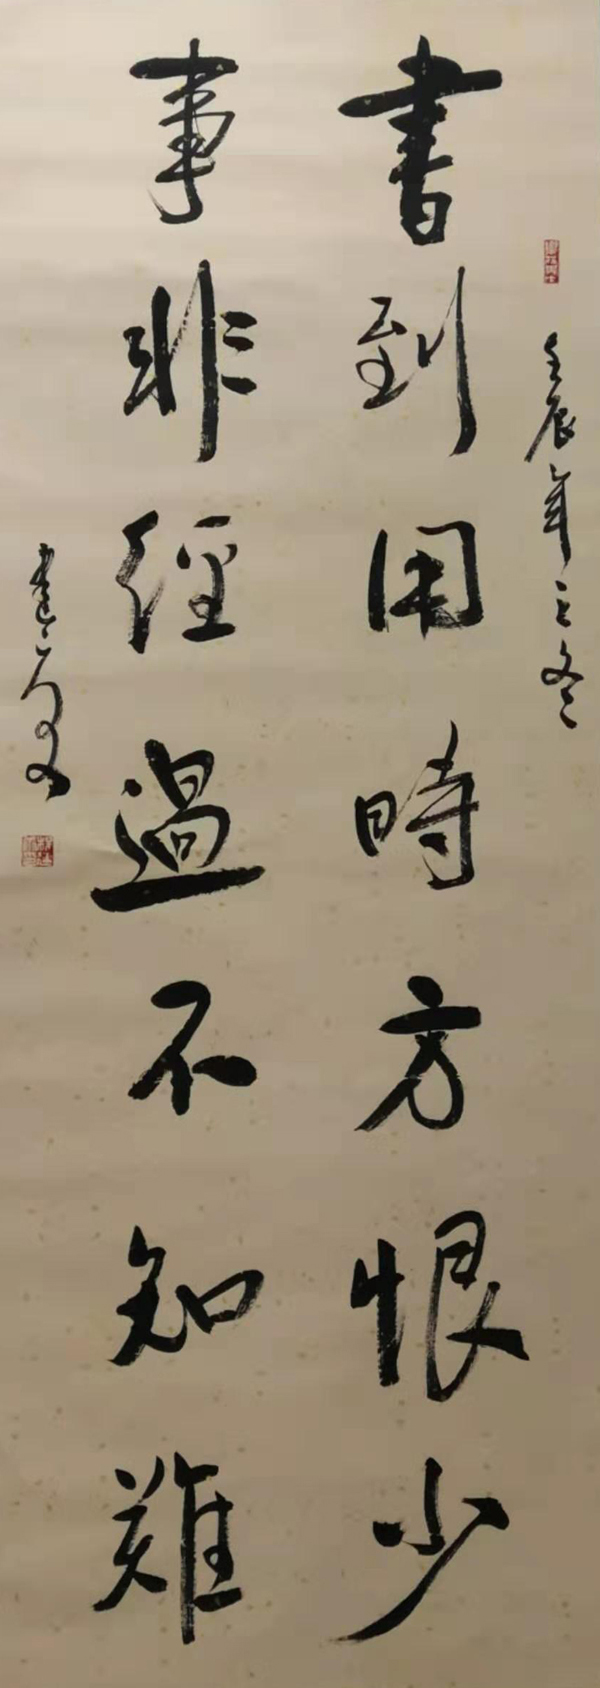 壬辰年之冬
書到用時方恨少
事非經過不知難